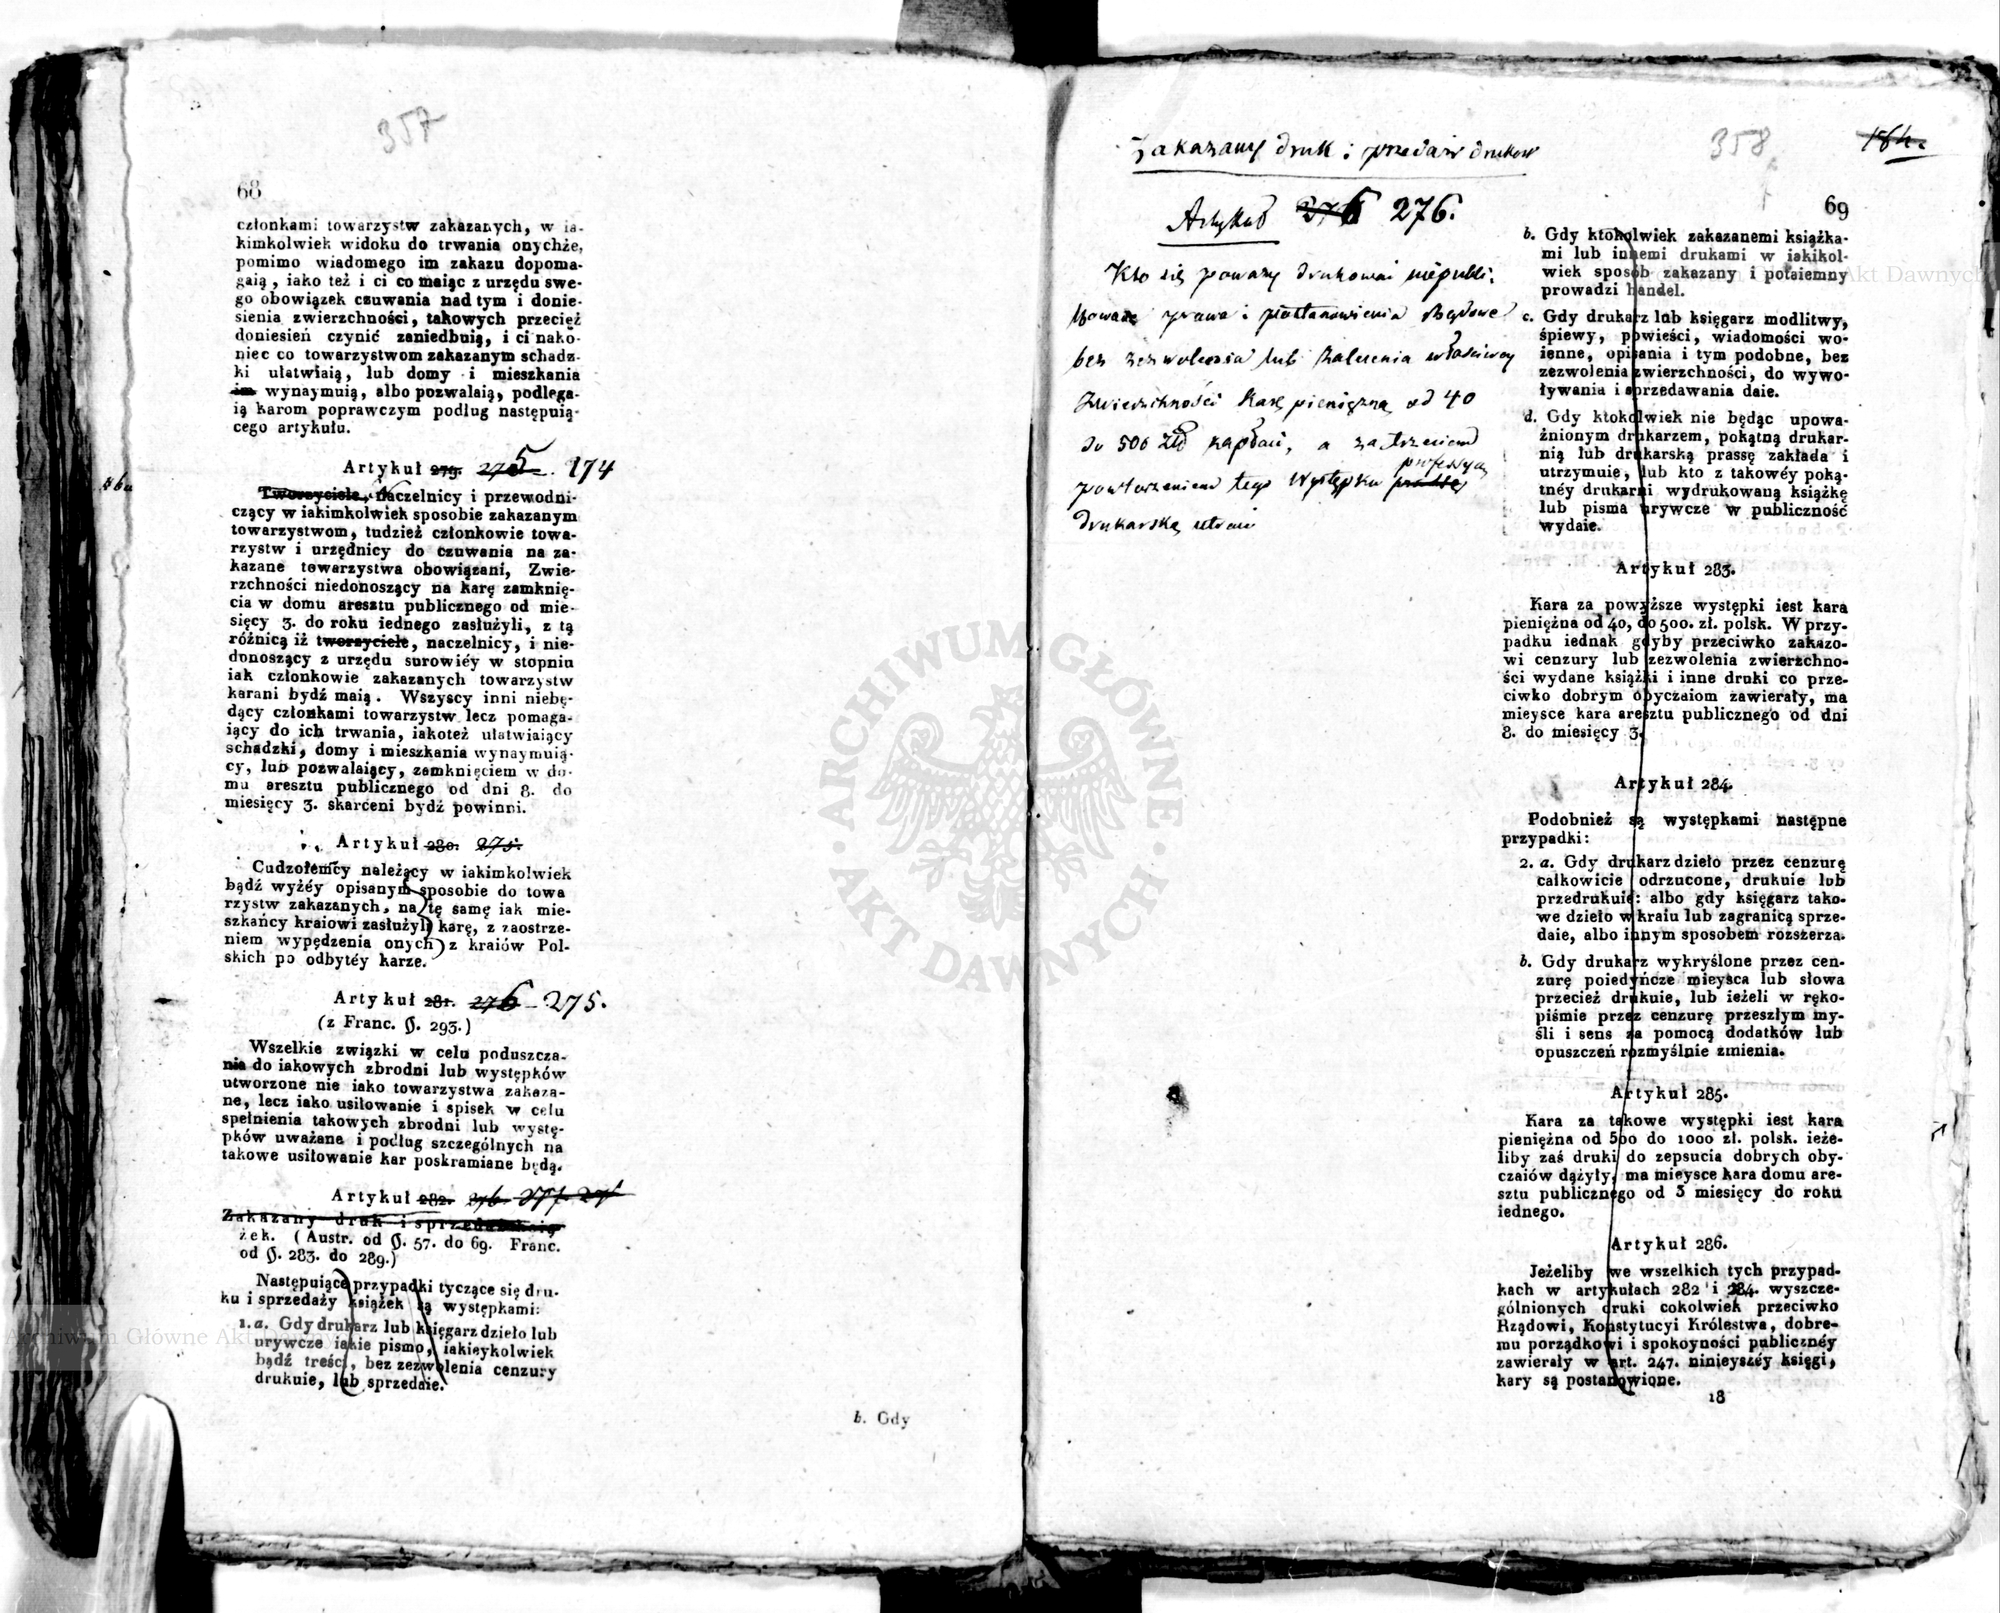 357
68
członkami towarzystw zakazanych, w ia-
kimkolwiek widoku do trwania onychże,
pomimo wiadomego im zakazu dopoma-
gaią, iako też i ci co maiąc z urzędu swe-
go obowiązek czuwania nad tym i donie-
sienia zwierzchności, takowych przecięż
doniesień czynić zaniedbuią, i ci nako-
niec co towarzystwom zakazanym schadz-
ki ułatwiaią, lub domy i mieszkania
im wynaymuią, albo pozwalaią, podlega-
ią karom poprawczym podług następuią-
cego artykułu.
Artykuł 279. 275. 174
Tworzyciele, Naczelnicy i przewodni-
czący w iakimkolwiek sposobie zakazanym
towarzystwom, tudzież członkowie towa-
rzystw i urzędnicy do czuwania na za-
kazane towarzystwa obowiązani, Zwie-
rzchności niedonoszący na karę zamknię-
cia w domu aresztu publicznego od mie-
sięcy 3. do roku iednego zasłużyli, z tą
różnicą iż tworzyciele, naczelnicy, i nie-
donoszący z urzędu surowiéy w stopniu
iak członkowie zakazanych towarzystw
karani bydź maią. Wszyscy inni niebę-
dący członkami towarzystw lecz pomaga-
iący do ich trwania, iakoteż ułatwiaiący
schadzki, domy i mieszkania wynaymuią-
cy, lub pozwalaiący, zamknięciem w do-
mu aresztu publicznego od dni 8. do
miesięcy 3. skarceni bydź powinni.
Artykuł 280. 275.
Cudzołemcy należący w iakimkolwiek
bądź wyżéy opisanym sposobie do towa
rzystw zakazanych, na tę samę iak mie-
szkańcy kraiowi zasłużyli karę, z zaostrze-
niem wypędzenia onych z kraiów Pol-
skich po odbytéy karze.
Artykuł 281. 276 275.
(z Franc. §. 293.)
Wszelkie związki w celu poduszcza-
nia do iakowych zbrodni lub występków
utworzone nie iako towarzystwa zakaza-
ne, lecz iako usiłowanie i spisek w celu
spełnienia takowych zbrodni lub wystę-
pków uważane i podług szczególnych na
takowe usiłowanie kar poskramiane będą.
Artykuł 282. 276. 277.
Zakazany druk i sprzedaż ksią-
żek. (Austr. od §. 57. do 69. Franc.
od §. 283. do 289.)
Następuiące przypadki tyczące się dru-
ku i sprzedaży książek są występkami:
1. a. Gdy drukarz lub księgarz dzieło lub
urywcze iakie pismo, iakieykolwiek
bądź treści, bez zezwolenia cenzury
drukuie, lub sprzedaie.
b. Gdy
Zakazany druk i przedaż druków
358
184.
Artykuł 276 276.
Kto się poważy drukować niepubli-
kowane prawa i postanowienia rządowe
bez zezwolenia lub zalecenia właściwey
Zwierzchności karę pieniężną od 40
do 500 Złł zapłaci, a za trzeciem
powtórzeniem tego Występku professyą
drukarską utraci
69
b. Gdy ktokolwiek zakazanemi książka-
mi lub innemi drukami w iakikol-
wiek sposób zakazany i potaiemny
prowadzi handel.
c. Gdy drukarz lub księgarz modlitwy,
śpiewy, powieści, wiadomości wo-
ienne, opisania i tym podobne, bez
zezwolenia zwierzchności, do wywo-
ływania i sprzedawania daie.
d. Gdy ktokolwiek nie będąc upowa-
żnionym drukarzem, pokątną drukar-
nią lub drukarską prassę zakłada i
utrzymuie, lub kto z takowéy poką-
tnéy drukarni wydrukowaną książkę
lub pisma urywcze w publiczność
wydaie.
Artykuł 283.
Kara za powyższe występki iest kara
pieniężna od 40, do 500. zł. polsk. W przy-
padku iednak gdyby przeciwko zakazo-
wi cenzury lub zezwolenia zwierzchno-
ści wydane książki i inne druki co prze-
ciwko dobrym obyczaiom zawierały, ma
mieysce kara aresztu publicznego od dni
8. do miesięcy 3.
Artykuł 284.
Podobnież są występkami następne
przypadki:
2. a. Gdy drukarz dzieło przez cenzurę
całkowicie odrzucone, drukuie lub
przedrukuie: albo gdy księgarz tako-
we dzieło w kraiu lub zagranicą sprze-
daie, albo innym sposobem rozszerza.
b. Gdy drukarz wykryślone przez cen-
zurę poiedyńcze mieysca lub słowa
przecież drukuie, lub ieżeli w ręko-
piśmie przez cenzurę przeszłym my-
śli i sens za pomocą dodatków lub
opuszczeń rozmyślnie zmienia.
Artykuł 285.
Kara za takowe występki iest kara
pieniężna od 500 do 1000 zł. polsk. ieże-
liby zaś druki do zepsucia dobrych oby-
czaiów dążyły, ma mieysce kara domu are-
sztu publicznego od 3 miesięcy do roku
iednego.
Artykuł 286.
Jeżeliby we wszelkich tych przypad-
kach w artykułach 282 i 284. wyszcze-
gólnionych druki cokolwiek przeciwko
Rządowi, Konstytucyi Królestwa, dobre-
mu porządkowi i spokoyności publicznéy
zawierały w art. 247. ninieyszéy księgi,
kary są postanowione.
18
ARCHIWUM GŁÓWNE
AKT DAWNYCH